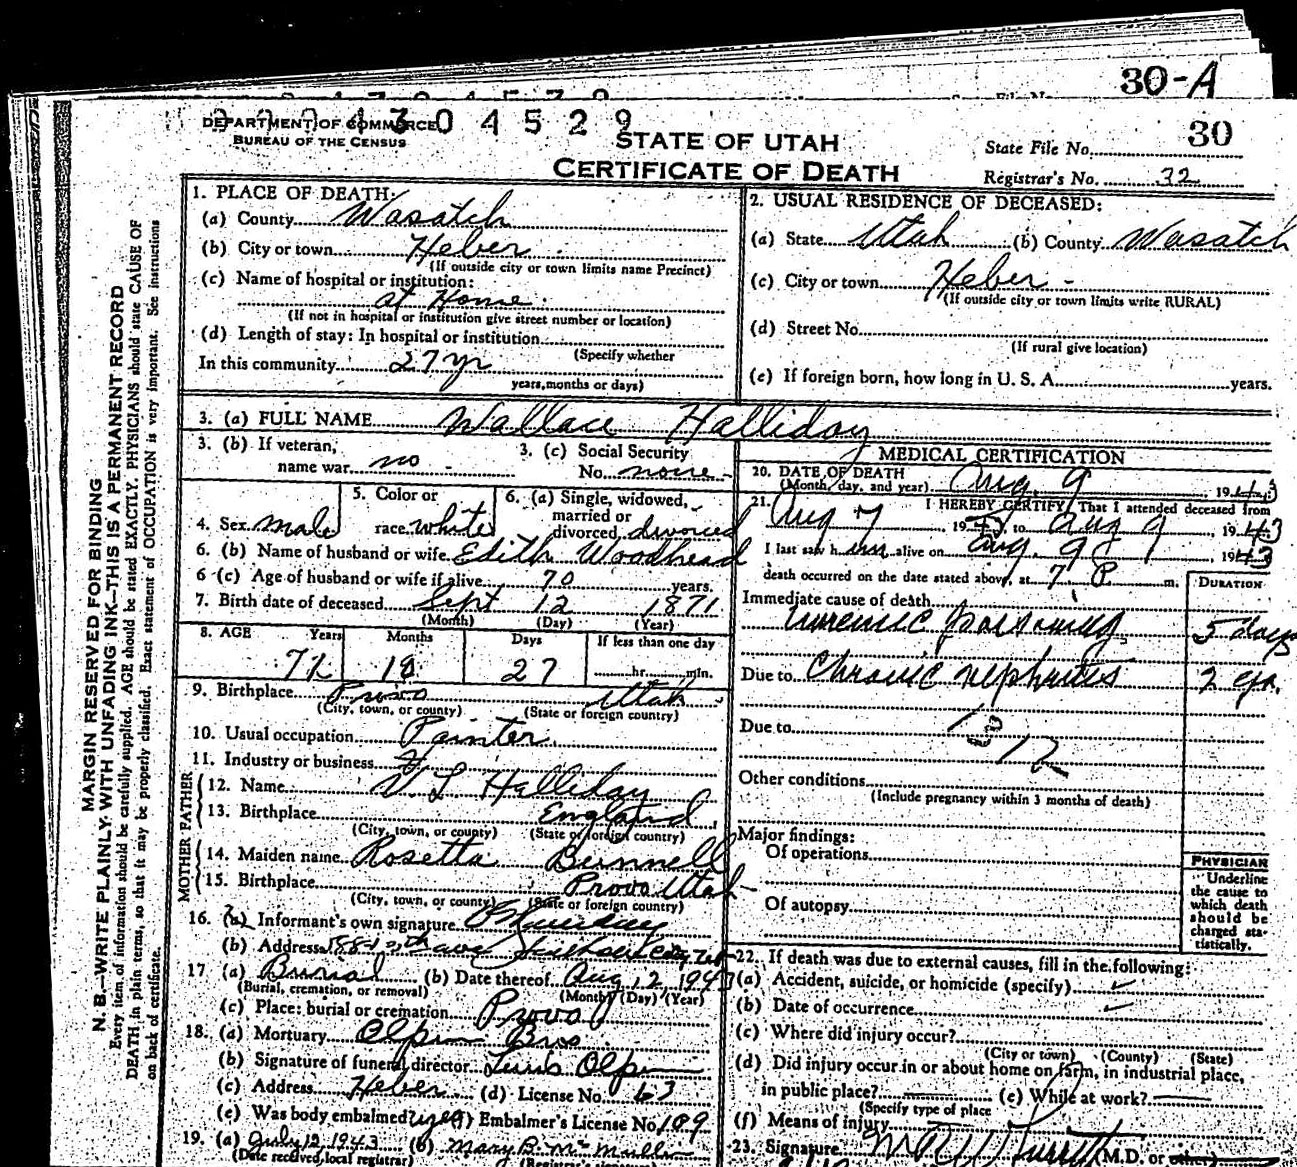 30-A
2 0 0 4 3 0 4 5 2 9
DEPARTMENT OF COMMERCE
BUREAU OF THE CENSUS
STATE OF UTAH
CERTIFICATE OF DEATH
State File No. 30
Registrar's No. 32
MARGIN RESERVED FOR BINDING
N. B.—WRITE PLAINLY WITH UNFADING INK—THIS IS A PERMANENT RECORD
Every item of information should be carefully supplied. AGE should be stated EXACTLY. PHYSICIANS should state CAUSE OF
DEATH in plain terms, so that it may be properly classified. Exact statement of OCCUPATION is very important. See instructions
on back of certificate.
1. PLACE OF DEATH:
(a) County Wasatch
(b) City or town Heber
(If outside city or town limits name Precinct)
(c) Name of hospital or institution:
at Home
(If not in hospital or institution give street number or location)
(d) Length of stay: In hospital or institution
(Specify whether
In this community 27 yr
years, months or days)
2. USUAL RESIDENCE OF DECEASED:
(a) State Utah (b) County Wasatch
(c) City or town Heber
(If outside city or town limits write RURAL)
(d) Street No.
(If rural give location)
(e) If foreign born, how long in U. S. A. years.
3. (a) FULL NAME Wallace Halliday
3. (b) If veteran, name war no
3. (c) Social Security No. none
4. Sex male
5. Color or race white
6. (a) Single, widowed, married or divorced divorced
6. (b) Name of husband or wife Edith Woodhead
6 (c) Age of husband or wife if alive 70 years.
7. Birth date of deceased Sept 12 1871
(Month) (Day) (Year)
8. AGE Years Months Days If less than one day
27 hr. min.
9. Birthplace Provo Utah
(City, town, or county) (State or foreign country)
10. Usual occupation Painter
11. Industry or business
FATHER
12. Name Halliday
13. Birthplace England
(City, town, or county) (State or foreign country)
MOTHER
14. Maiden name Rosetta Bunnell
15. Birthplace Provo Utah
(City, town, or county) (State or foreign country)
16. (a) Informant's own signature
(b) Address
17. (a) Burial (b) Date thereof Aug 12 1943
(Burial, cremation, or removal) (Month) (Day) (Year)
(c) Place: burial or cremation Provo
18. (a) Mortuary Olpin Bros
(b) Signature of funeral director Olpin
(c) Address Heber (d) License No. 63
(e) Was body embalmed? yes (f) Embalmer's License No. 189
19. (a) July 12 1943 (b) Mary B. McMullin
(Date received local registrar) (Registrar's signature)
MEDICAL CERTIFICATION
20. DATE OF DEATH
(Month, day, and year) Aug. 9, 1943
21. I HEREBY CERTIFY, That I attended deceased from
Aug 7, 1943 to Aug 9, 1943
I last saw him alive on Aug. 9, 1943
death occurred on the date stated above, at 7 P. m.
DURATION
Immediate cause of death
uremic poisoning 5 days
Due to Chronic nephritis 2 yr.
Due to
Other conditions
(Include pregnancy within 3 months of death)
Major findings:
Of operations
Of autopsy
PHYSICIAN
Underline
the cause to
which death
should be
charged sta-
tistically.
22. If death was due to external causes, fill in the following:
(a) Accident, suicide, or homicide (specify)
(b) Date of occurrence
(c) Where did injury occur?
(City or town) (County) (State)
(d) Did injury occur in or about home on farm, in industrial place,
in public place? (e) While at work?
(Specify type of place
(f) Means of injury
23. Signature (M.D. or other)